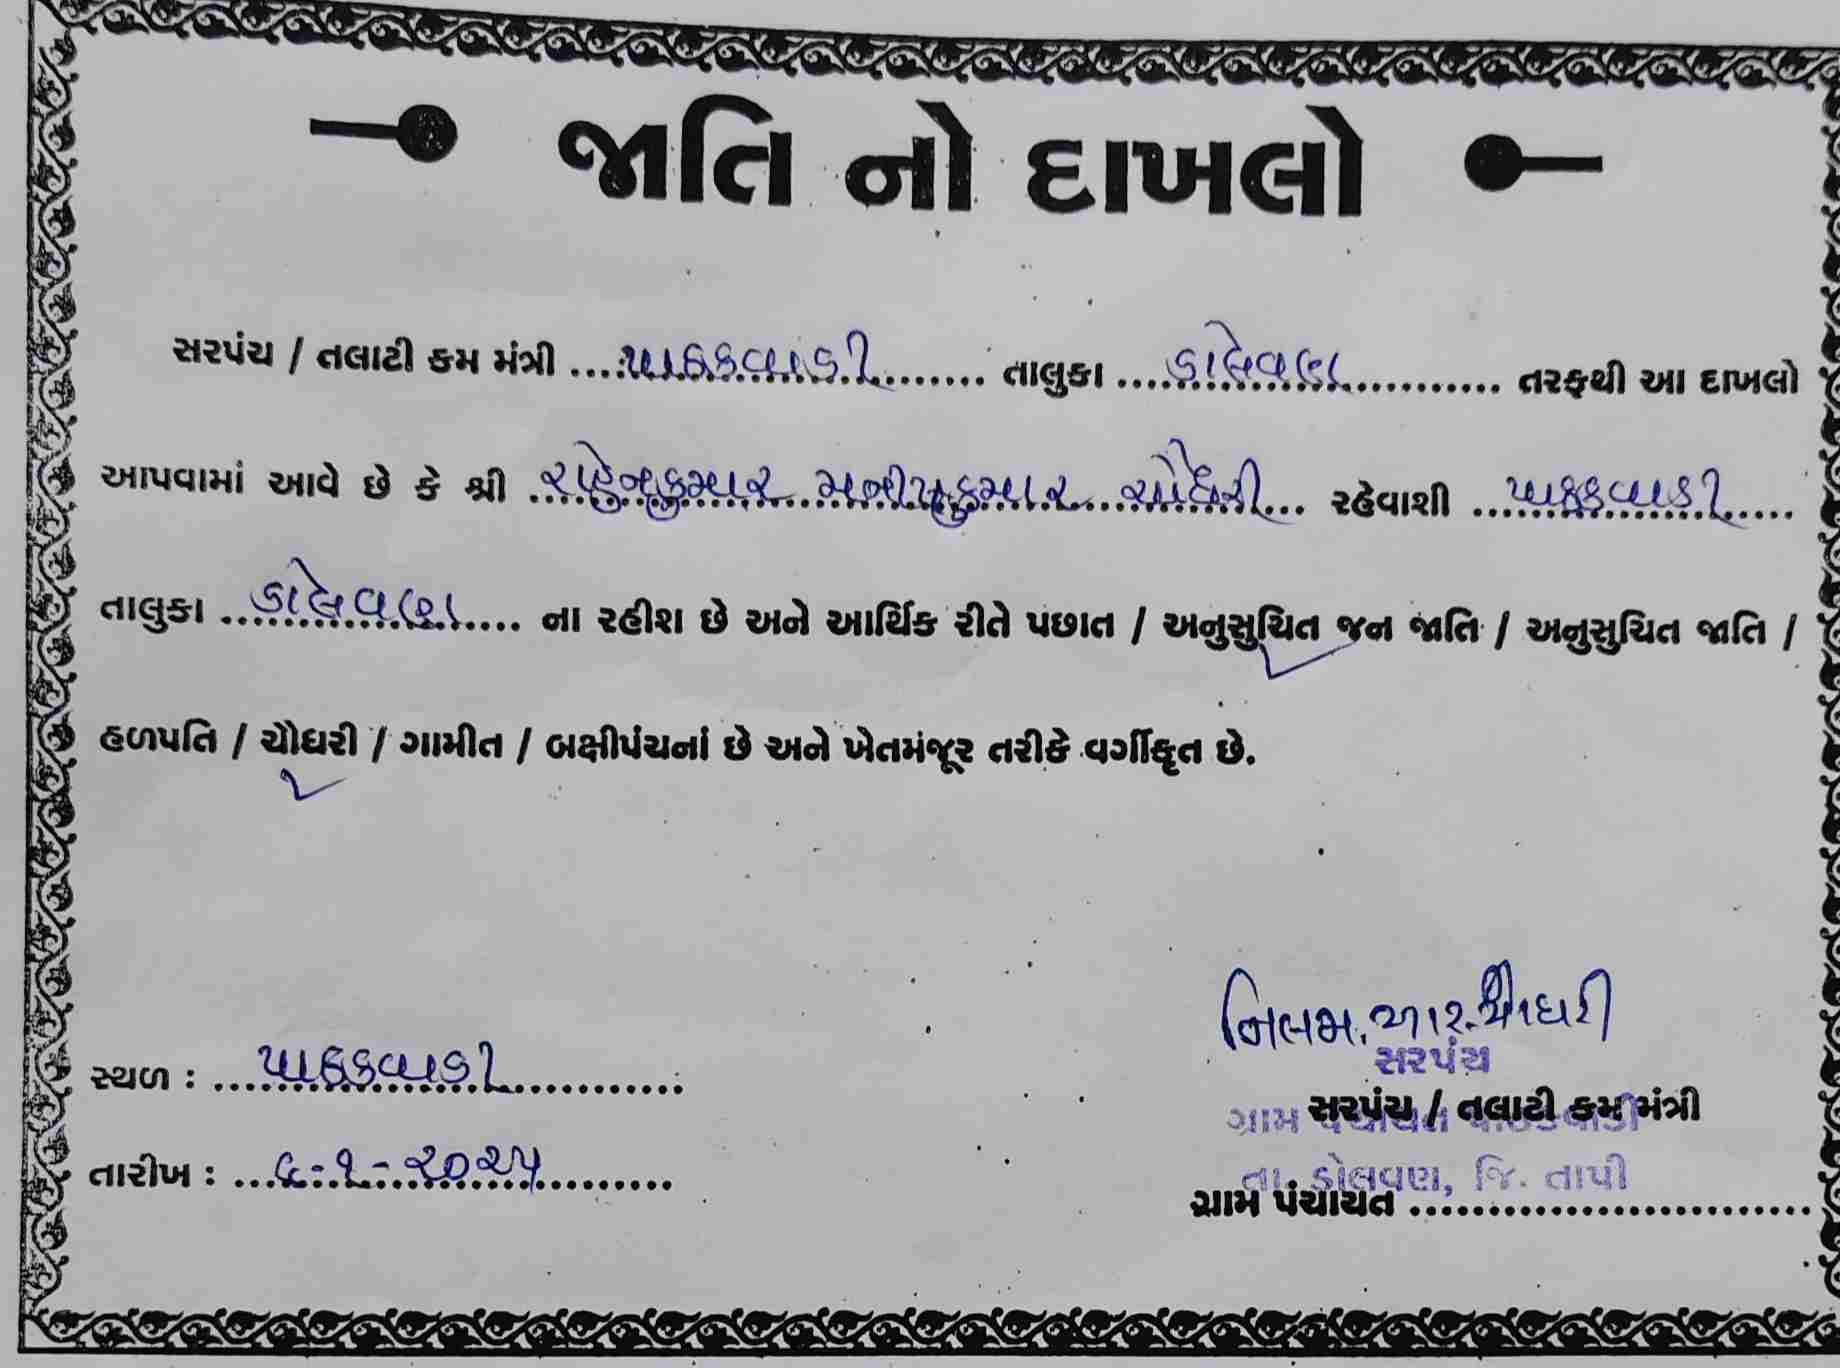 જાતિ નો દાખલો
સરપંચ / તલાટી કમ મંત્રી ..... પાઠકવાડી ..... તાલુકા ..... ડોલવણ ..... તરફથી આ દાખલો
આપવામાં આવે છે કે શ્રી ..... કુમાર ..... ચૌધરી ..... રહેવાશી ..... પાઠકવાડી .....
તાલુકા ..... ડોલવણ ..... ના રહીશ છે અને આર્થિક રીતે પછાત / અનુસુચિત જન જાતિ / અનુસુચિત જાતિ /
હળપતિ / ચૌધરી / ગામીત / બક્ષીપંચનાં છે અને ખેતમંજૂર તરીકે વર્ગીકૃત છે.
નિલમ. આર. ચૌધરી
સરપંચ
સ્થળ : ..... પાઠકવાડી .....
સરપંચ / તલાટી કમ મંત્રી
ગ્રામ પંચાયત પાઠકવાડી
તારીખ : ..... ૬-૧-૨૦૨૫ .....
તા. ડોલવણ, જિ. તાપી
ગ્રામ પંચાયત .....